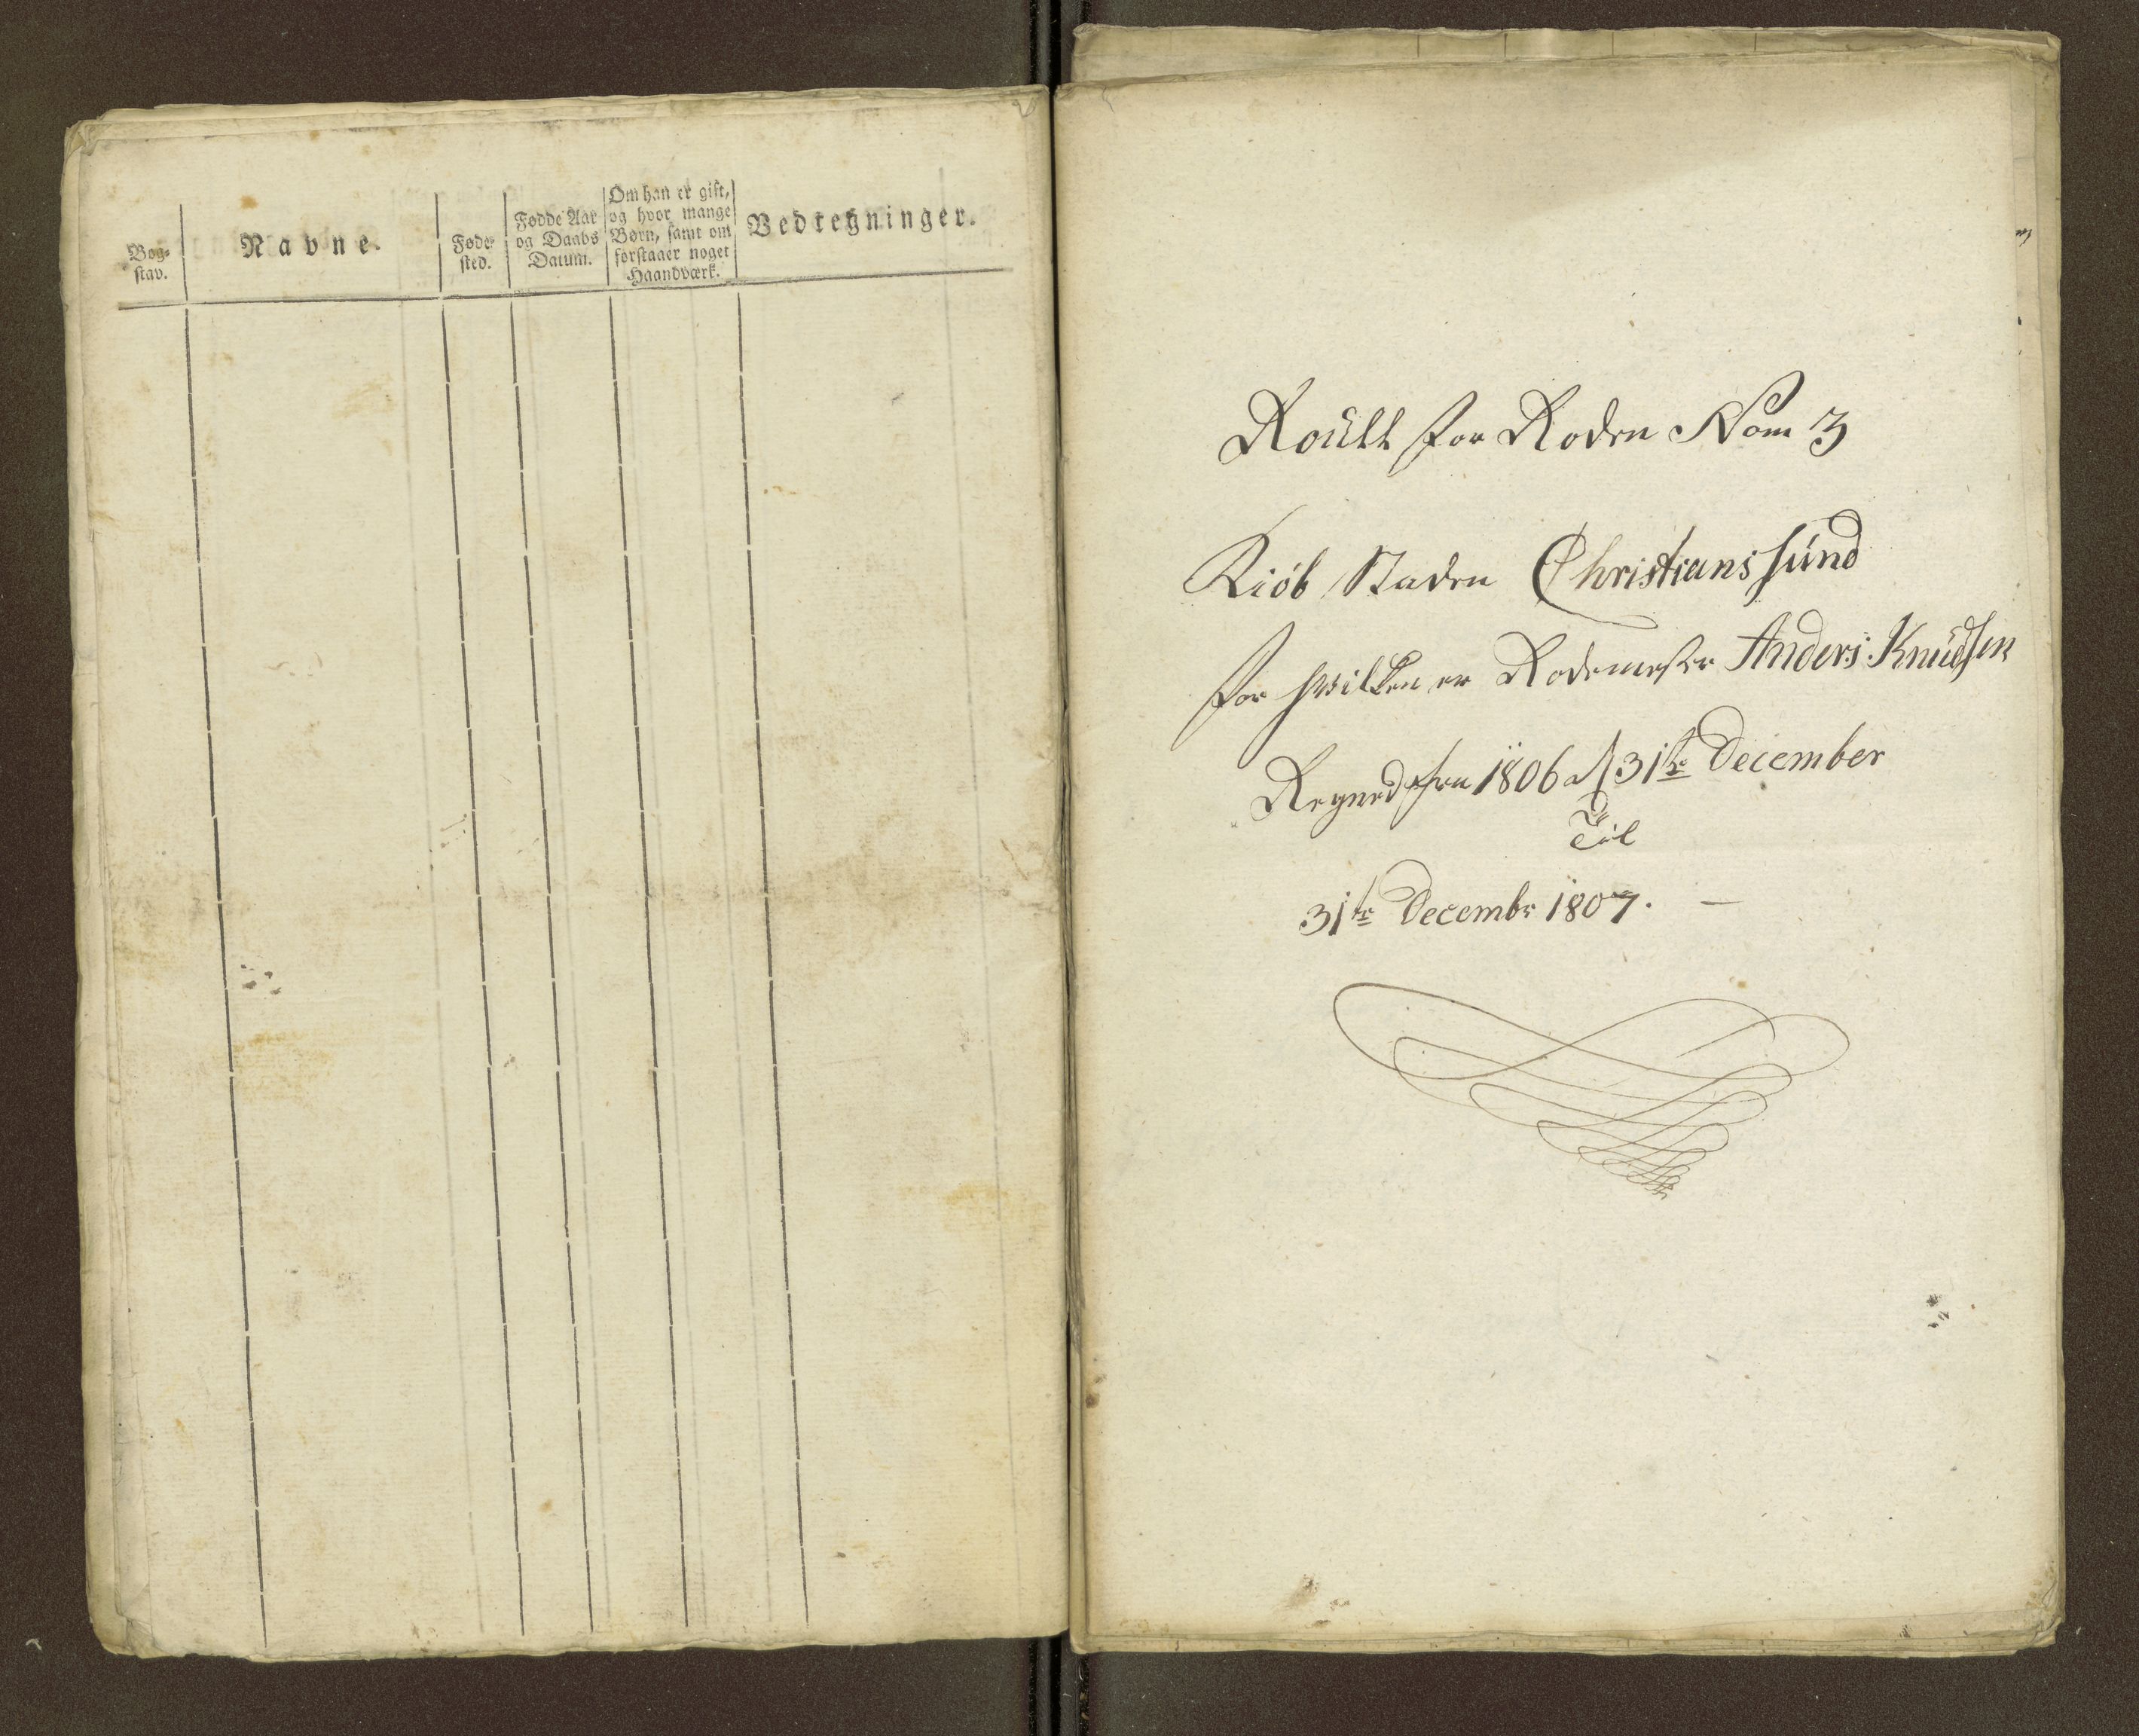 Bog-
stav.
Navne.
Føde-
sted.
Fødde Aar
og Daabs
Datum.
Om han er gift,
og hvor mange
Børn, samt om
forstaaer noget
Haandværk.
Vedtegninger.
Roull for Roden Nom 3
Kiöb Staden Christianssund
for hvilken er Rodemester Anders Knudsen
Regned fra 1806 31te December
Til
31te Decembr 1807. —